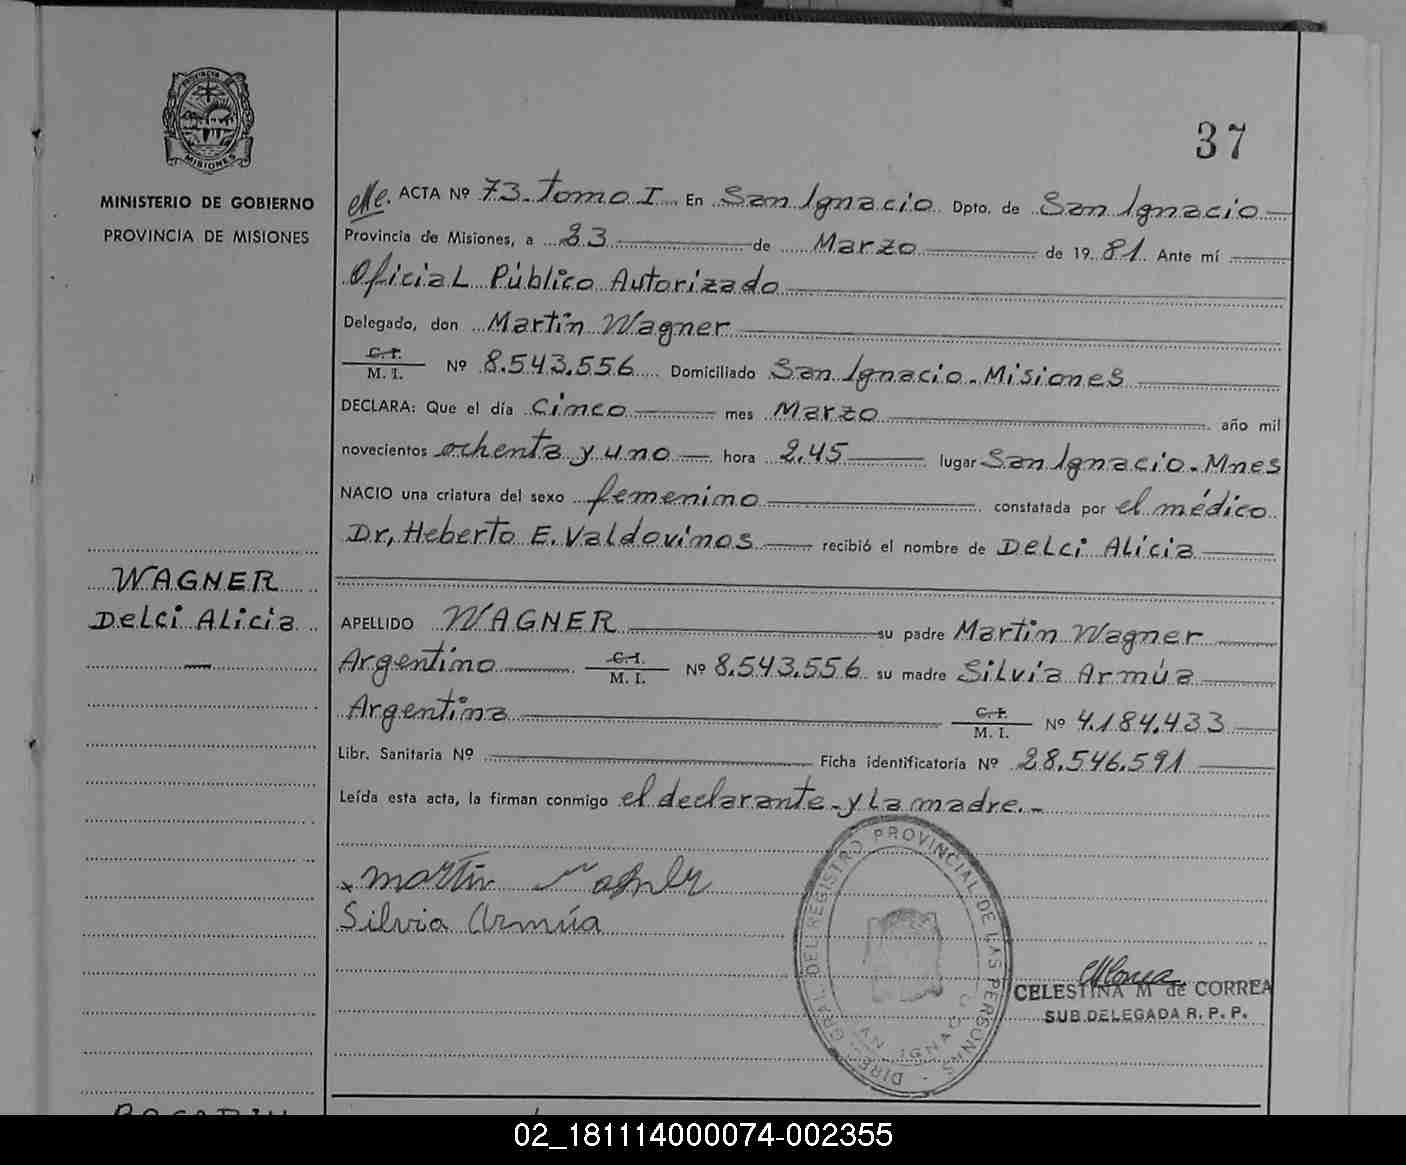 PROVINCIA DE
MISIONES
MINISTERIO DE GOBIERNO
PROVINCIA DE MISIONES
37
ACTA Nº 73. Tomo I En San Ignacio Dpto. de San Ignacio
Provincia de Misiones, a 23 de Marzo de 1981 Ante mí
Oficial Público Autorizado
Delegado, don Martin Wagner
C. I.
M. I. Nº 8.543.556 Domiciliado San Ignacio. Misiones
DECLARA: Que el día cinco mes Marzo año mil
novecientos ochenta y uno hora 2,45 lugar San Ignacio. Mnes
NACIO una criatura del sexo femenino constatada por el médico
Dr, Heberto E. Valdovinos recibió el nombre de Delci Alicia
WAGNER
Delci Alicia
APELLIDO WAGNER su padre Martin Wagner
Argentino C. I. M. I. Nº 8.543.556 su madre Silvia Armúa
Argentina C. I. M. I. Nº 4.184.433
Libr. Sanitaria Nº Ficha identificatoria Nº 28.546.591
Leída esta acta, la firman conmigo el declarante - y la madre. -
x Martin Wagner
Silvia Armúa
DIREC. GRAL. DEL REGISTRO PROVINCIAL DE LAS PERSONAS
SAN IGNACIO
CELESTINA M de CORREA
SUB DELEGADA R. P. P.
02_181114000074-002355